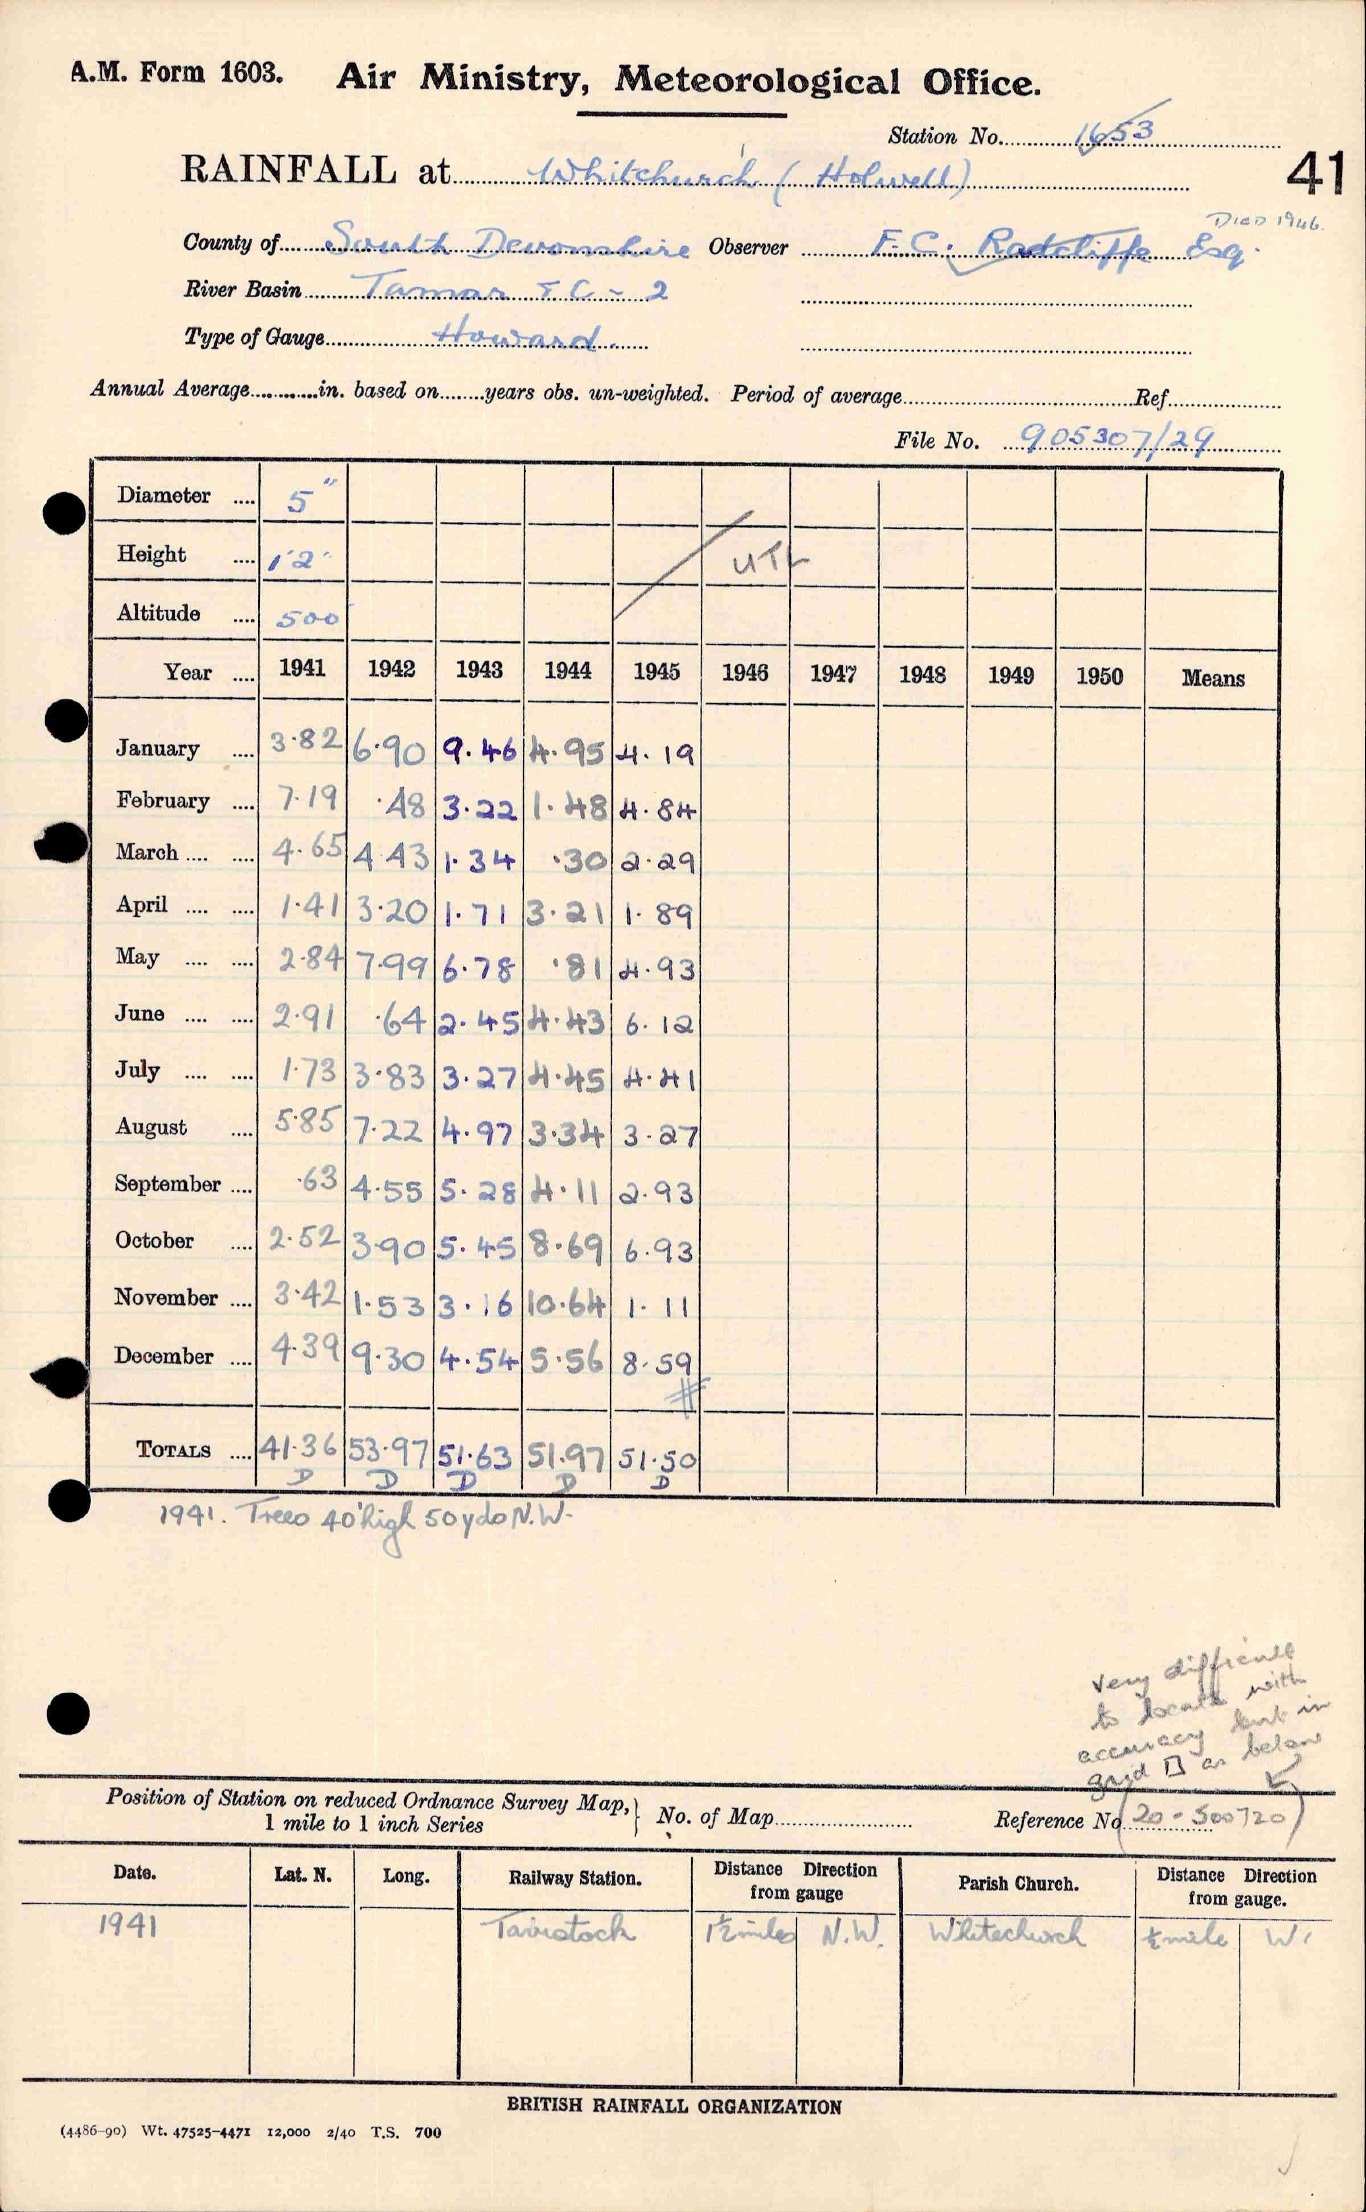 A.M. Form 1603. Air Ministry, Meteorological Office.
Station No. 1653
41
RAINFALL at Whitchurch (Holwell)
DIED 1946.
County of South Devonshire Observer F.C. Radcliffe Esq.
River Basin Tamar & C - 2
Type of Gauge Howard.
Annual Average in. based on years obs. un-weighted. Period of average Ref
File No. 905307/29
Diameter 5"
Height 1'2"
UTL
Altitude 500'
Year 1941 1942 1943 1944 1945 1946 1947 1948 1949 1950 Means
January 3.82 6.90 9.46 4.95 4.19
February 7.19 .48 3.22 1.48 4.84
March 4.65 4.43 1.34 .30 2.29
April 1.41 3.20 1.71 3.21 1.89
May 2.84 7.99 6.78 .81 4.93
June 2.91 .64 2.45 4.43 6.12
July 1.73 3.83 3.27 4.45 4.41
August 5.85 7.22 4.97 3.34 3.27
September .63 4.55 5.28 4.11 2.93
October 2.52 3.90 5.45 8.69 6.93
November 3.42 1.53 3.16 10.64 1.11
December 4.39 9.30 4.54 5.56 8.59
TOTALS 41.36 53.97 51.63 51.97 51.50
D D D D D
1941. Trees 40' high 50 yds N.W.
very difficult
to locate with
accuracy but in
grid as below
Position of Station on reduced Ordnance Survey Map,
1 mile to 1 inch Series
No. of Map
Reference No (20-500720)
Date. Lat. N. Long. Railway Station. Distance Direction from gauge Parish Church. Distance Direction from gauge.
1941 Tavistock 1½ miles N.W. Whitechurch ½ mile W.
BRITISH RAINFALL ORGANIZATION
(4486-90) Wt. 47525-4471 12,000 2/40 T.S. 700